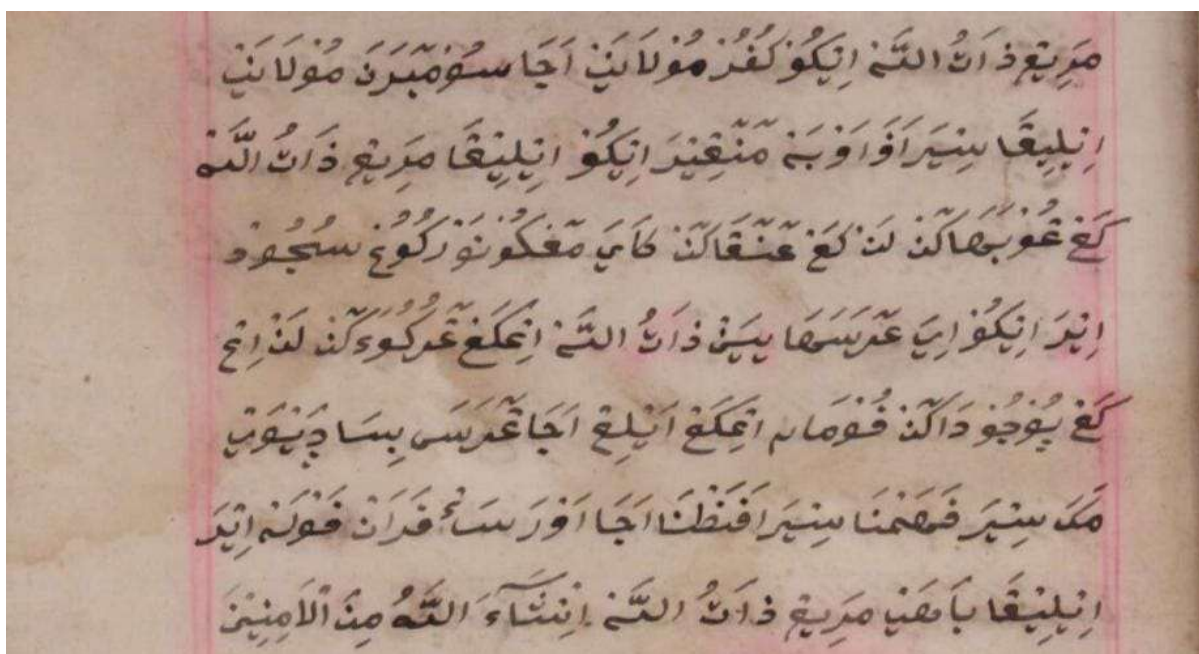 مَرِيڠْ ذَاتُ اللَّهْ اِيْكُوْ كُفُرْ مُوْلَانَيْ اَجَا سُوْمٓبَرَنْ مُوْلَانَيْ
اِيْلِيْڠَا سِيْرَ اَوَاوْبَهْ مَنْڠِيْرَ اِيْكُوْ اِيْلِيْڠَا مَرِيڠْ ذَاتُ اللَّهْ
كَڠْ ڠُوْبَهَاكٓنْ لَنْ كَڠْ ڠَنْڠَاكٓنْ كَايَ مٓڠْكُوْنَوْ رُكُوْعْ سُجُوْدْ
اِيْرَ اِيْكُوْ اِيَ ڠَرَسَهَا يَيْنْ ذَاتُ اللَّهْ اِڠْكَڠْ ڠَرُكُوْءَكٓنْ لَنْ اِڠْ
كَڠْ يُوْجُوْدَاكٓنْ فُوْمَا٢ اِڠْكَڠْ اَيْلِڠْ اَجَا ڠَرَسَ بِسَا دٓيْوَيْ
مَكَ سِيْرَ فَهَمْنَا سِيْرَ اَفَظْنَا اَجَا اَوْرَ سَاءْ فَرَانْ فَوْلَهْ اِيْرَ
اِيْلِيْڠَا بَاهَيْ مَرِيڠْ ذَاتُ اللَّهْ اِنْشَآءَ اللَّهُ مِنَ الْاَمِنِيْنَ